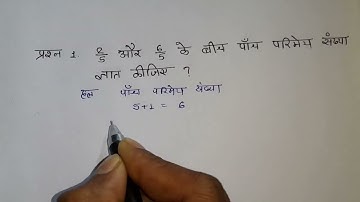 प्रश्न 1. 2/5 और 6/5 के बीच पाँच परिमेय संख्या
ज्ञात कीजिए ?
हल पाँच परिमेय संख्या
5+1 = 6